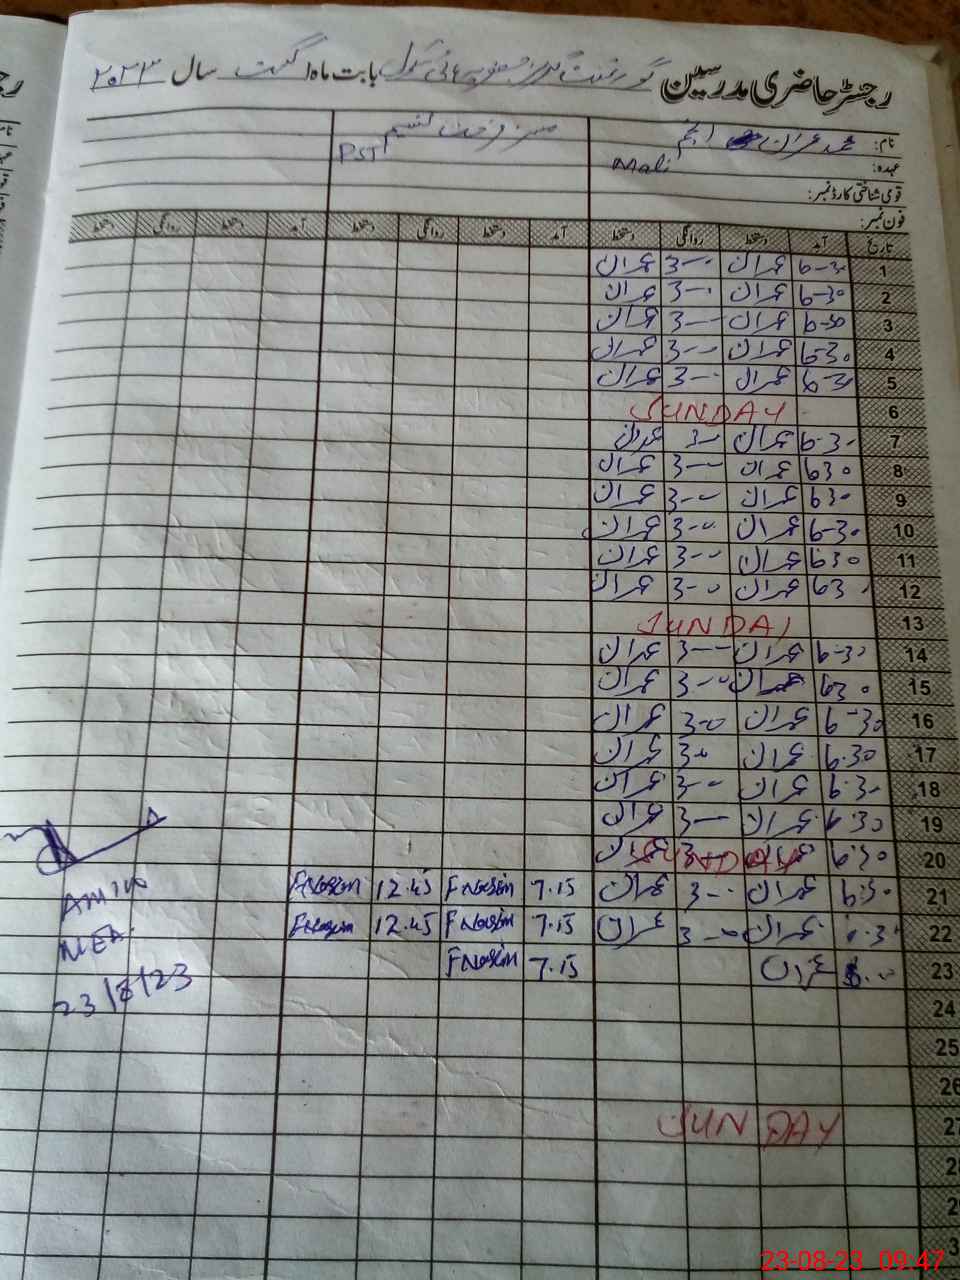 رجسٹر حاضری مدرسین گورنمنٹ ہائی سکول بابت ماہ اگست سال ۲۰۲۳
نام: محمد عمران انجم مسز فرحت نسیم
عہدہ: Mali PST
قومی شناختی کارڈ نمبر:
فون نمبر:
تاریخ آمد دستخط روانگی دستخط آمد دستخط روانگی دستخط آمد دستخط روانگی دستخط
1 6-30 عمران 3-- عمران
2 6-30 عمران 3-- عمران
3 6-30 عمران 3-- عمران
4 6-30 عمران 3-- عمران
5 6-30 عمران 3-- عمران
6 SUNDAY
7 6-30 عمران 3-- عمران
8 630 عمران 3-- عمران
9 630 عمران 3-0 عمران
10 6-30 عمران 3-0 عمران
11 630 عمران 3-- عمران
12 630 عمران 3-0 عمران
13 SUNDAY
14 6-30 عمران 3-- عمران
15 630 عمران 3-0 عمران
16 6-30 عمران 3-0 عمران
17 6.30 عمران 30 عمران
18 6.30 عمران 3-0 عمران
19 6.30 عمران 3-- عمران
20 6.30 SUNDAY عمران
21 6.30 عمران 3-- عمران 7.15 FNasim 12.45 FNasim
22 6.30 عمران 3-0 عمران 7.15 FNasim 12.45 FNasim
23 عمران 7.15 FNasim
24
25
26
27 SUNDAY
MEA
23/8/23
23-08-23 09:47